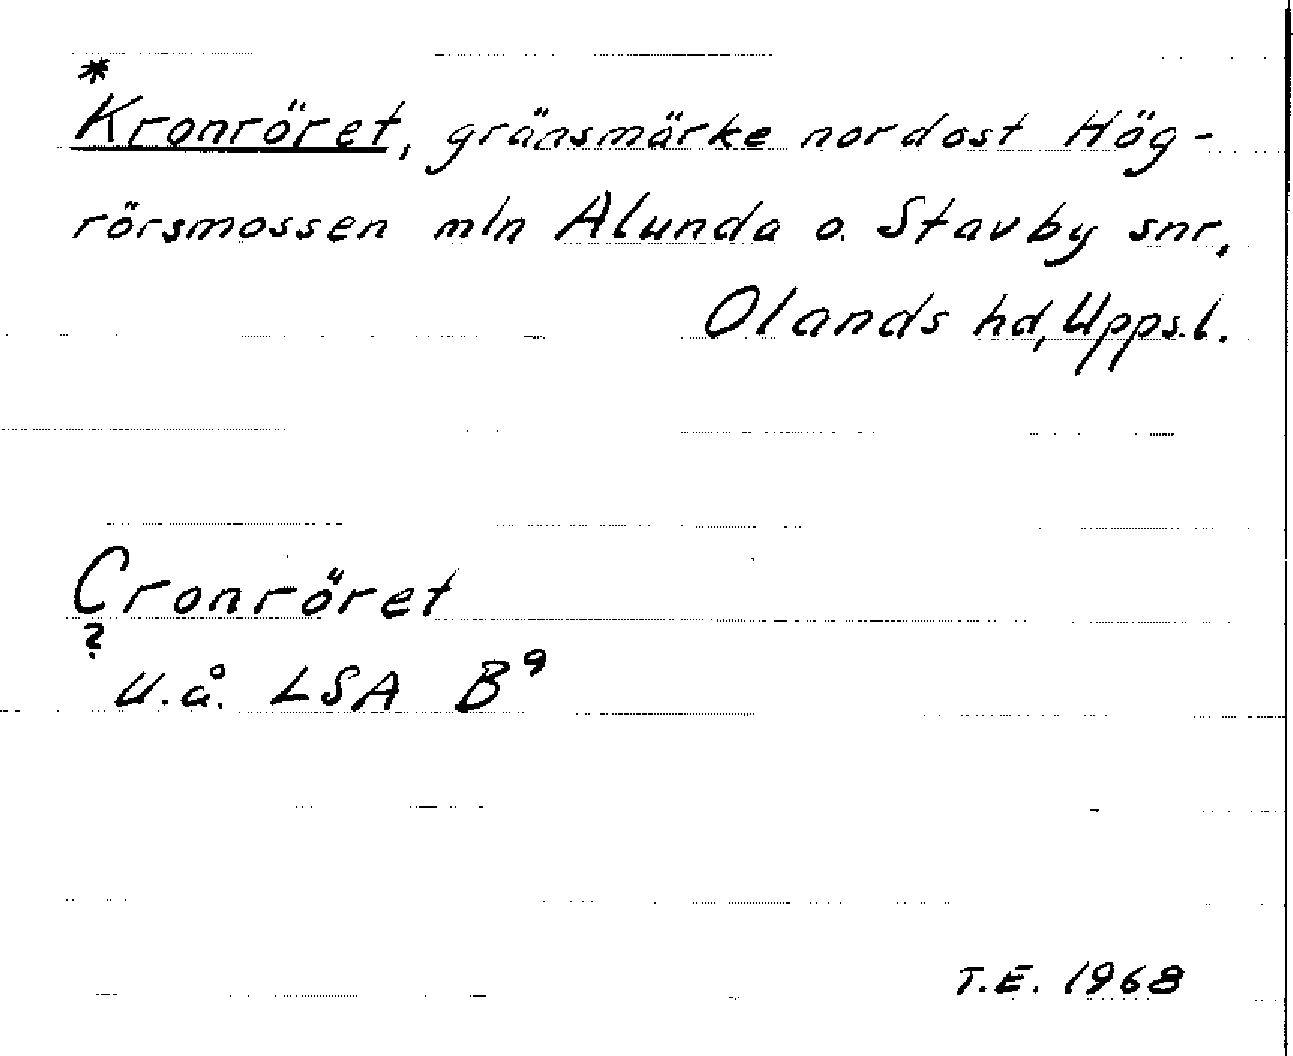 *
Kronröret, gränsmärke nordost Hög-
rörsmossen mln Alunda o. Stavby snr,
Olands hd, Upps.l.
Cronröret
?
u.å. LSA B⁹
T.E. 1968